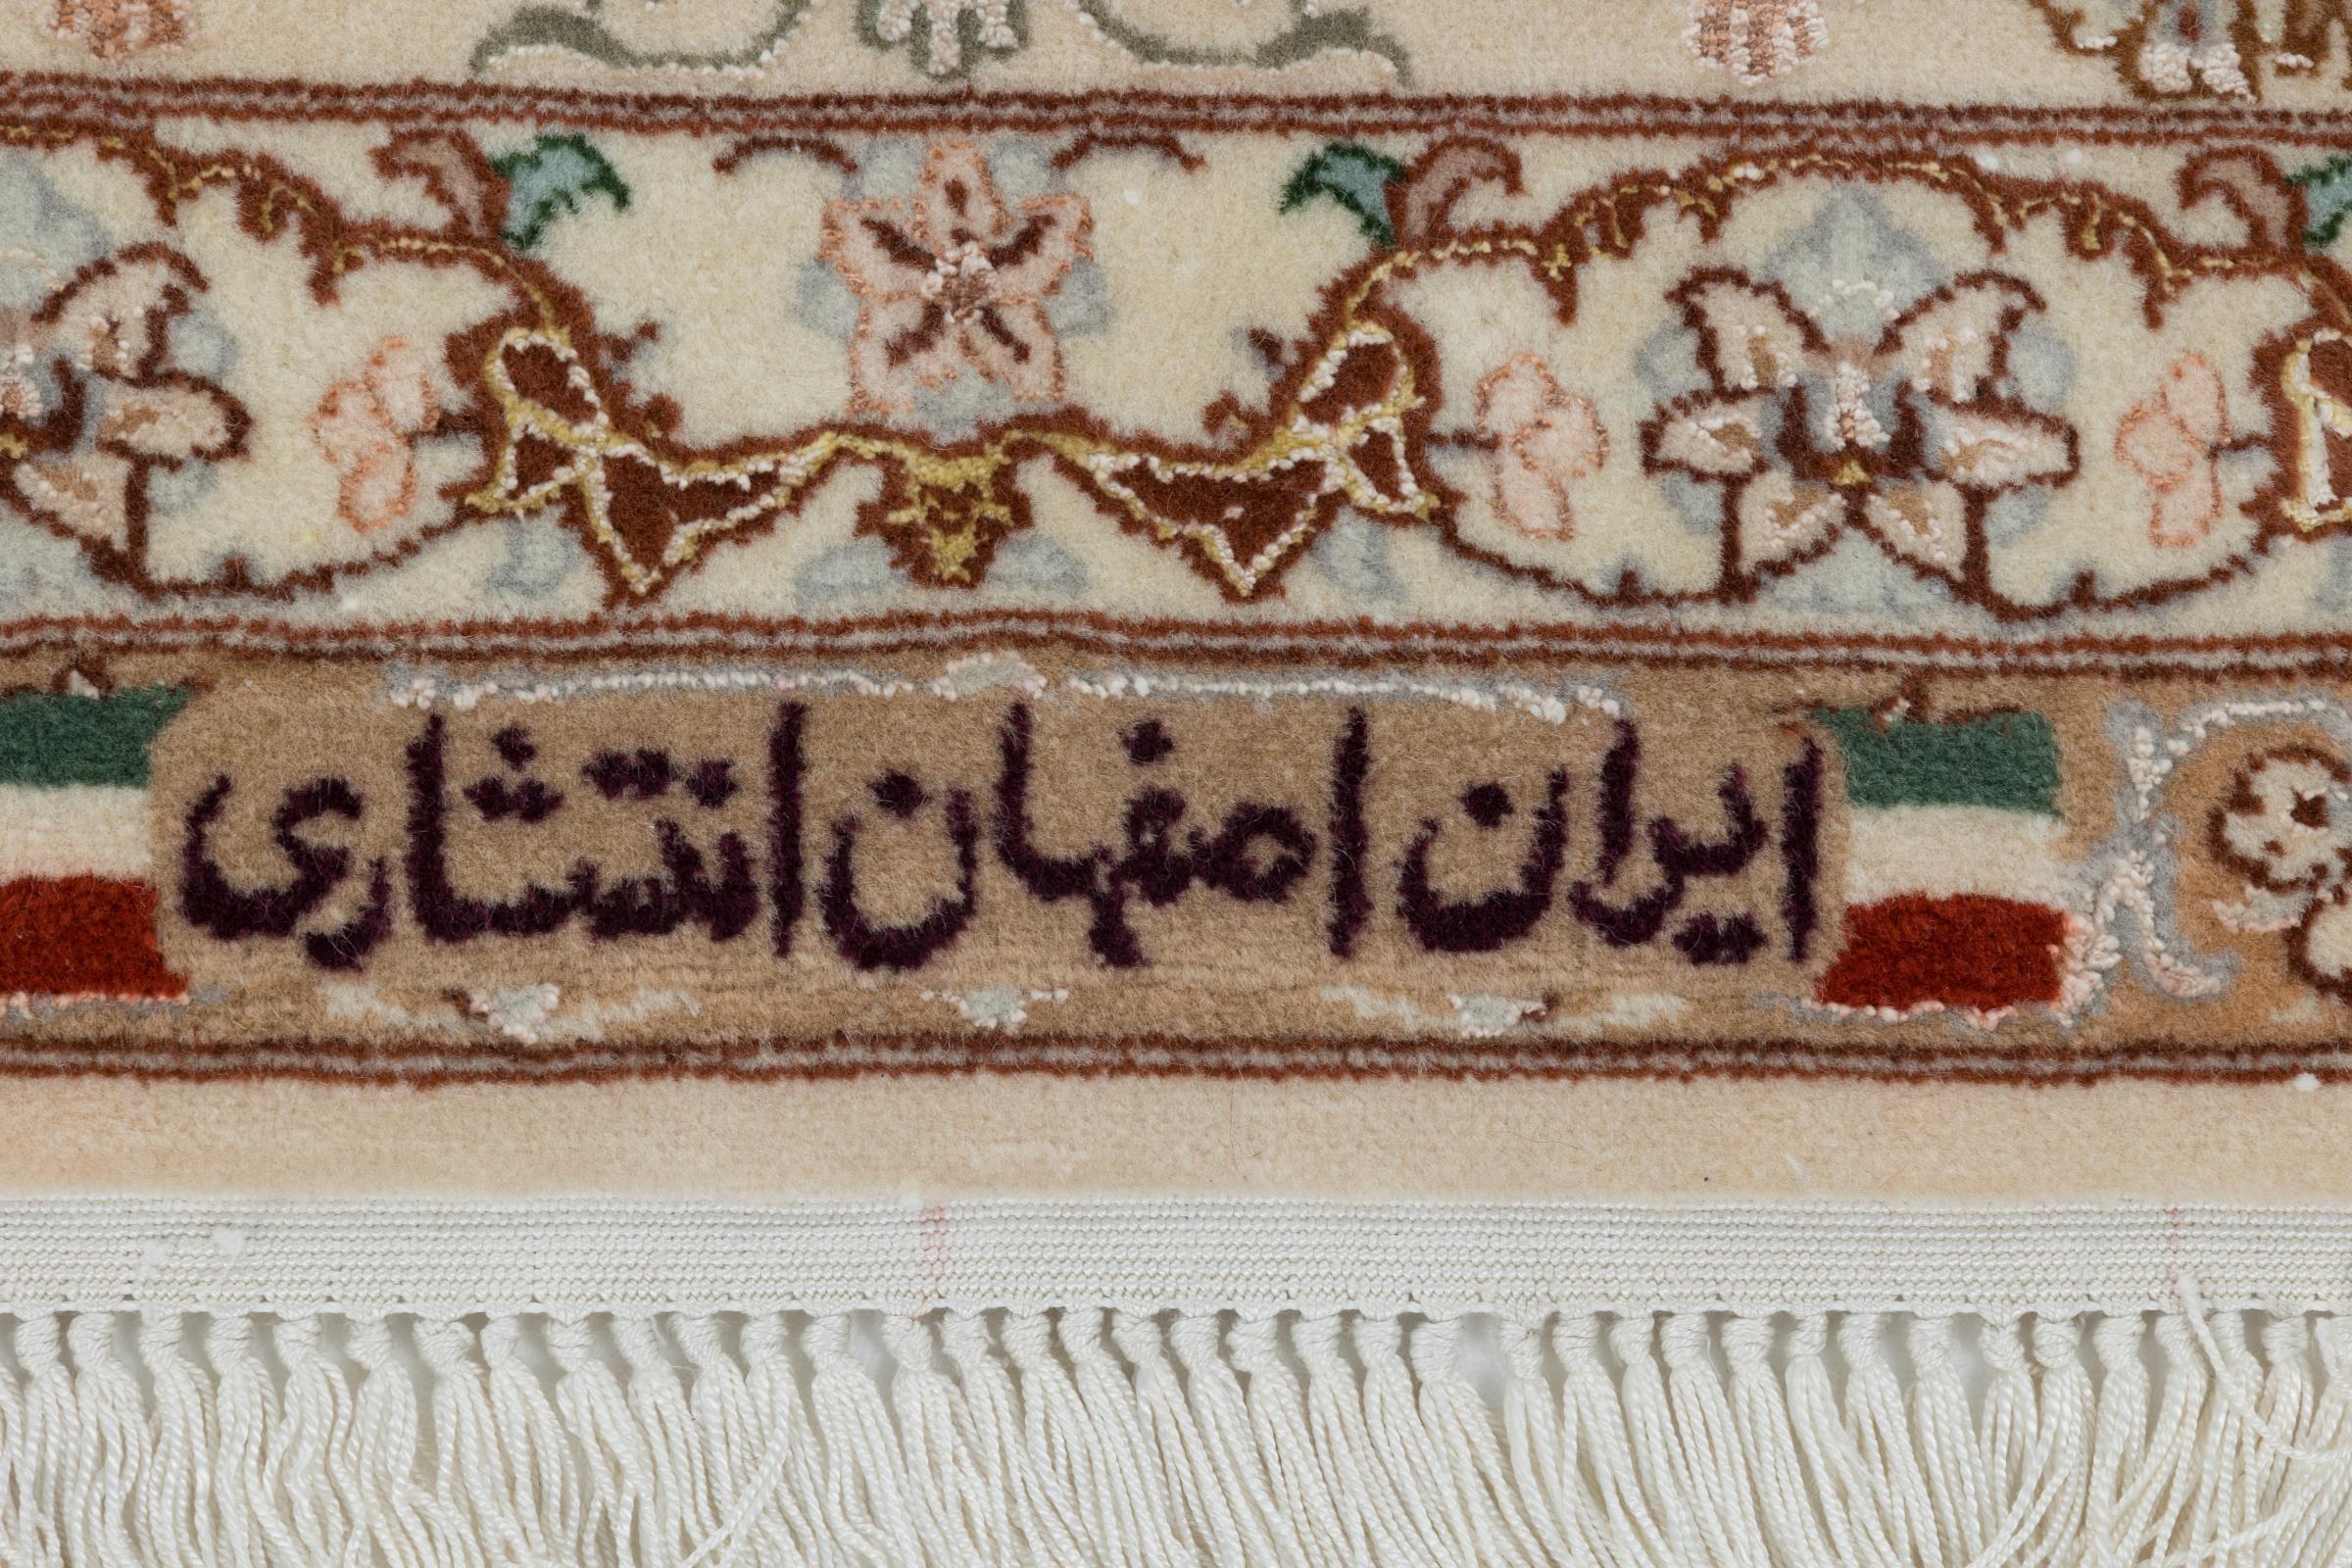 ایران اصفهان انتشاری